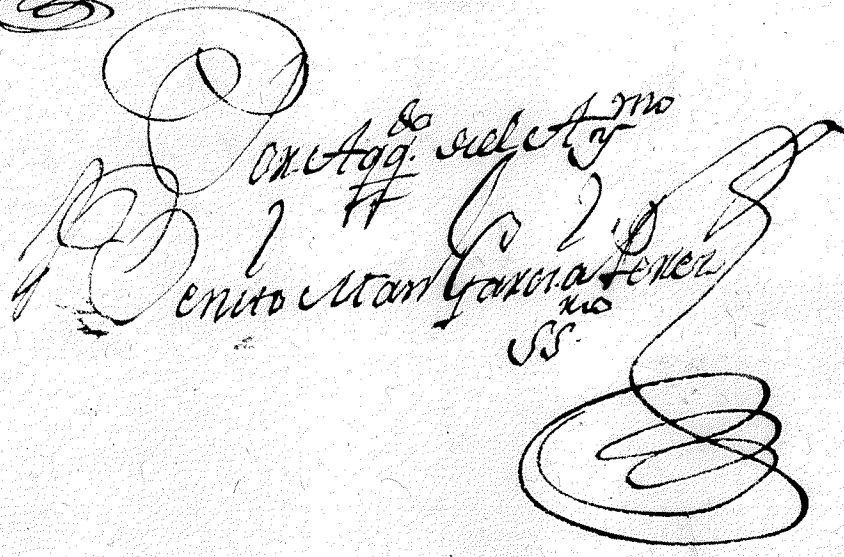 Por Aqq.do del Aym.o
Benito Man Garcia Perez
SS.rio